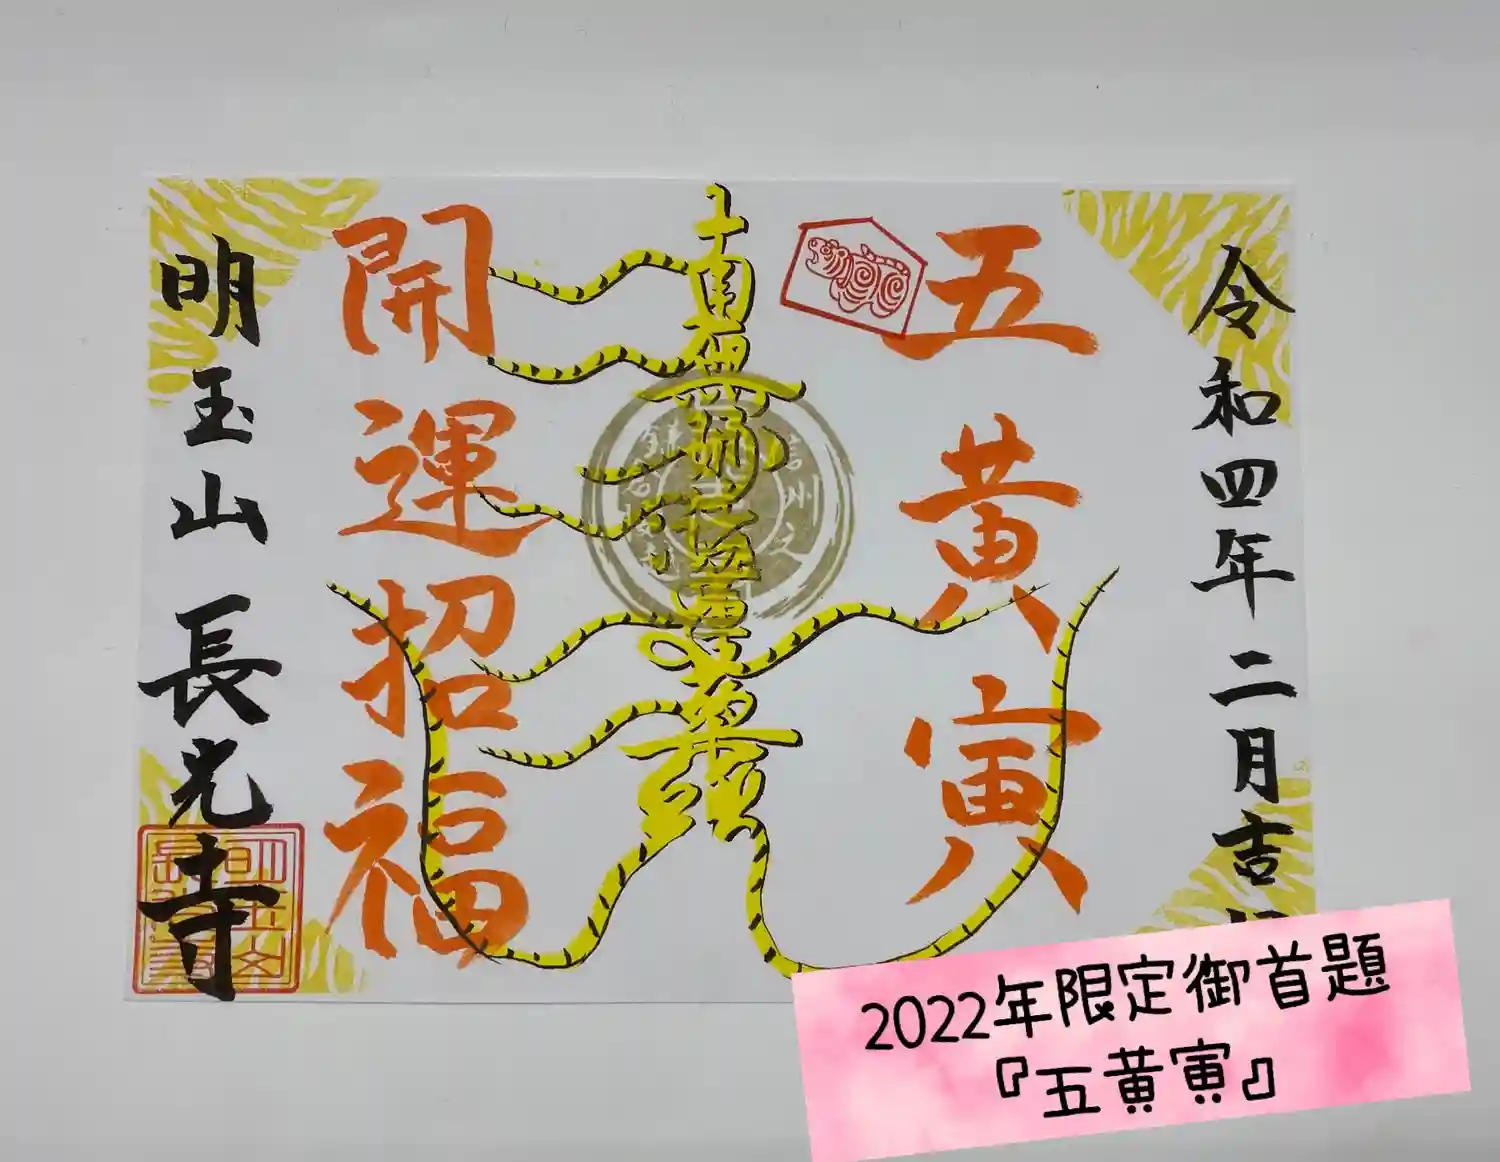 令和四年二月吉
五黄寅
南無妙法蓮華経
開運招福
明玉山 長光寺
2022年限定御首題
『五黄寅』